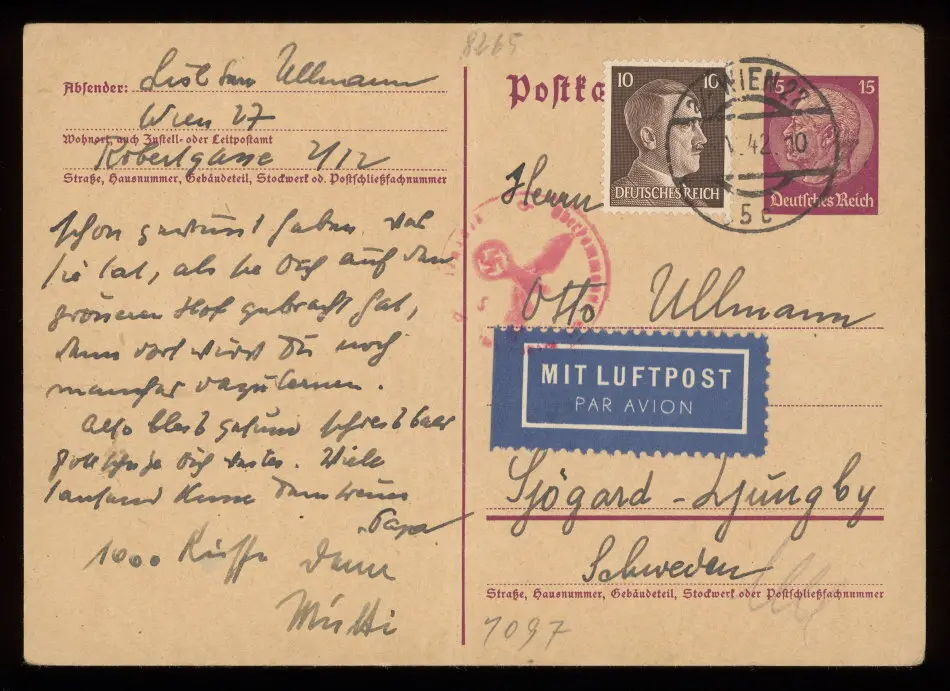 8265
Absender: Ullmann
Wien 27
Wohnort, auch Zustell- oder Leitpostamt
Robertgasse 2/12
Straße, Hausnummer, Gebäudeteil, Stockwerk od. Postschließfachnummer
schon gewusst haben was
sie tat, als sie Dich auf den
grösseren Hof gebracht hat,
denn dort wirst Du noch
manches dazulernen.
Also bleib gesund schreib
Gott schütze Dich weiter. Viele
tausend Küsse Dein
Papa
1000 Küsse Deine
Mutti
Postka
10 10
DEUTSCHES REICH
WIEN 27
42 10
5c
15 15
Deutsches Reich
Herrn
Otto Ullmann
MIT LUFTPOST
PAR AVION
Sjögard - Ljungby
Schweden
Straße, Hausnummer, Gebäudeteil, Stockwerk oder Postschließfachnummer
1097